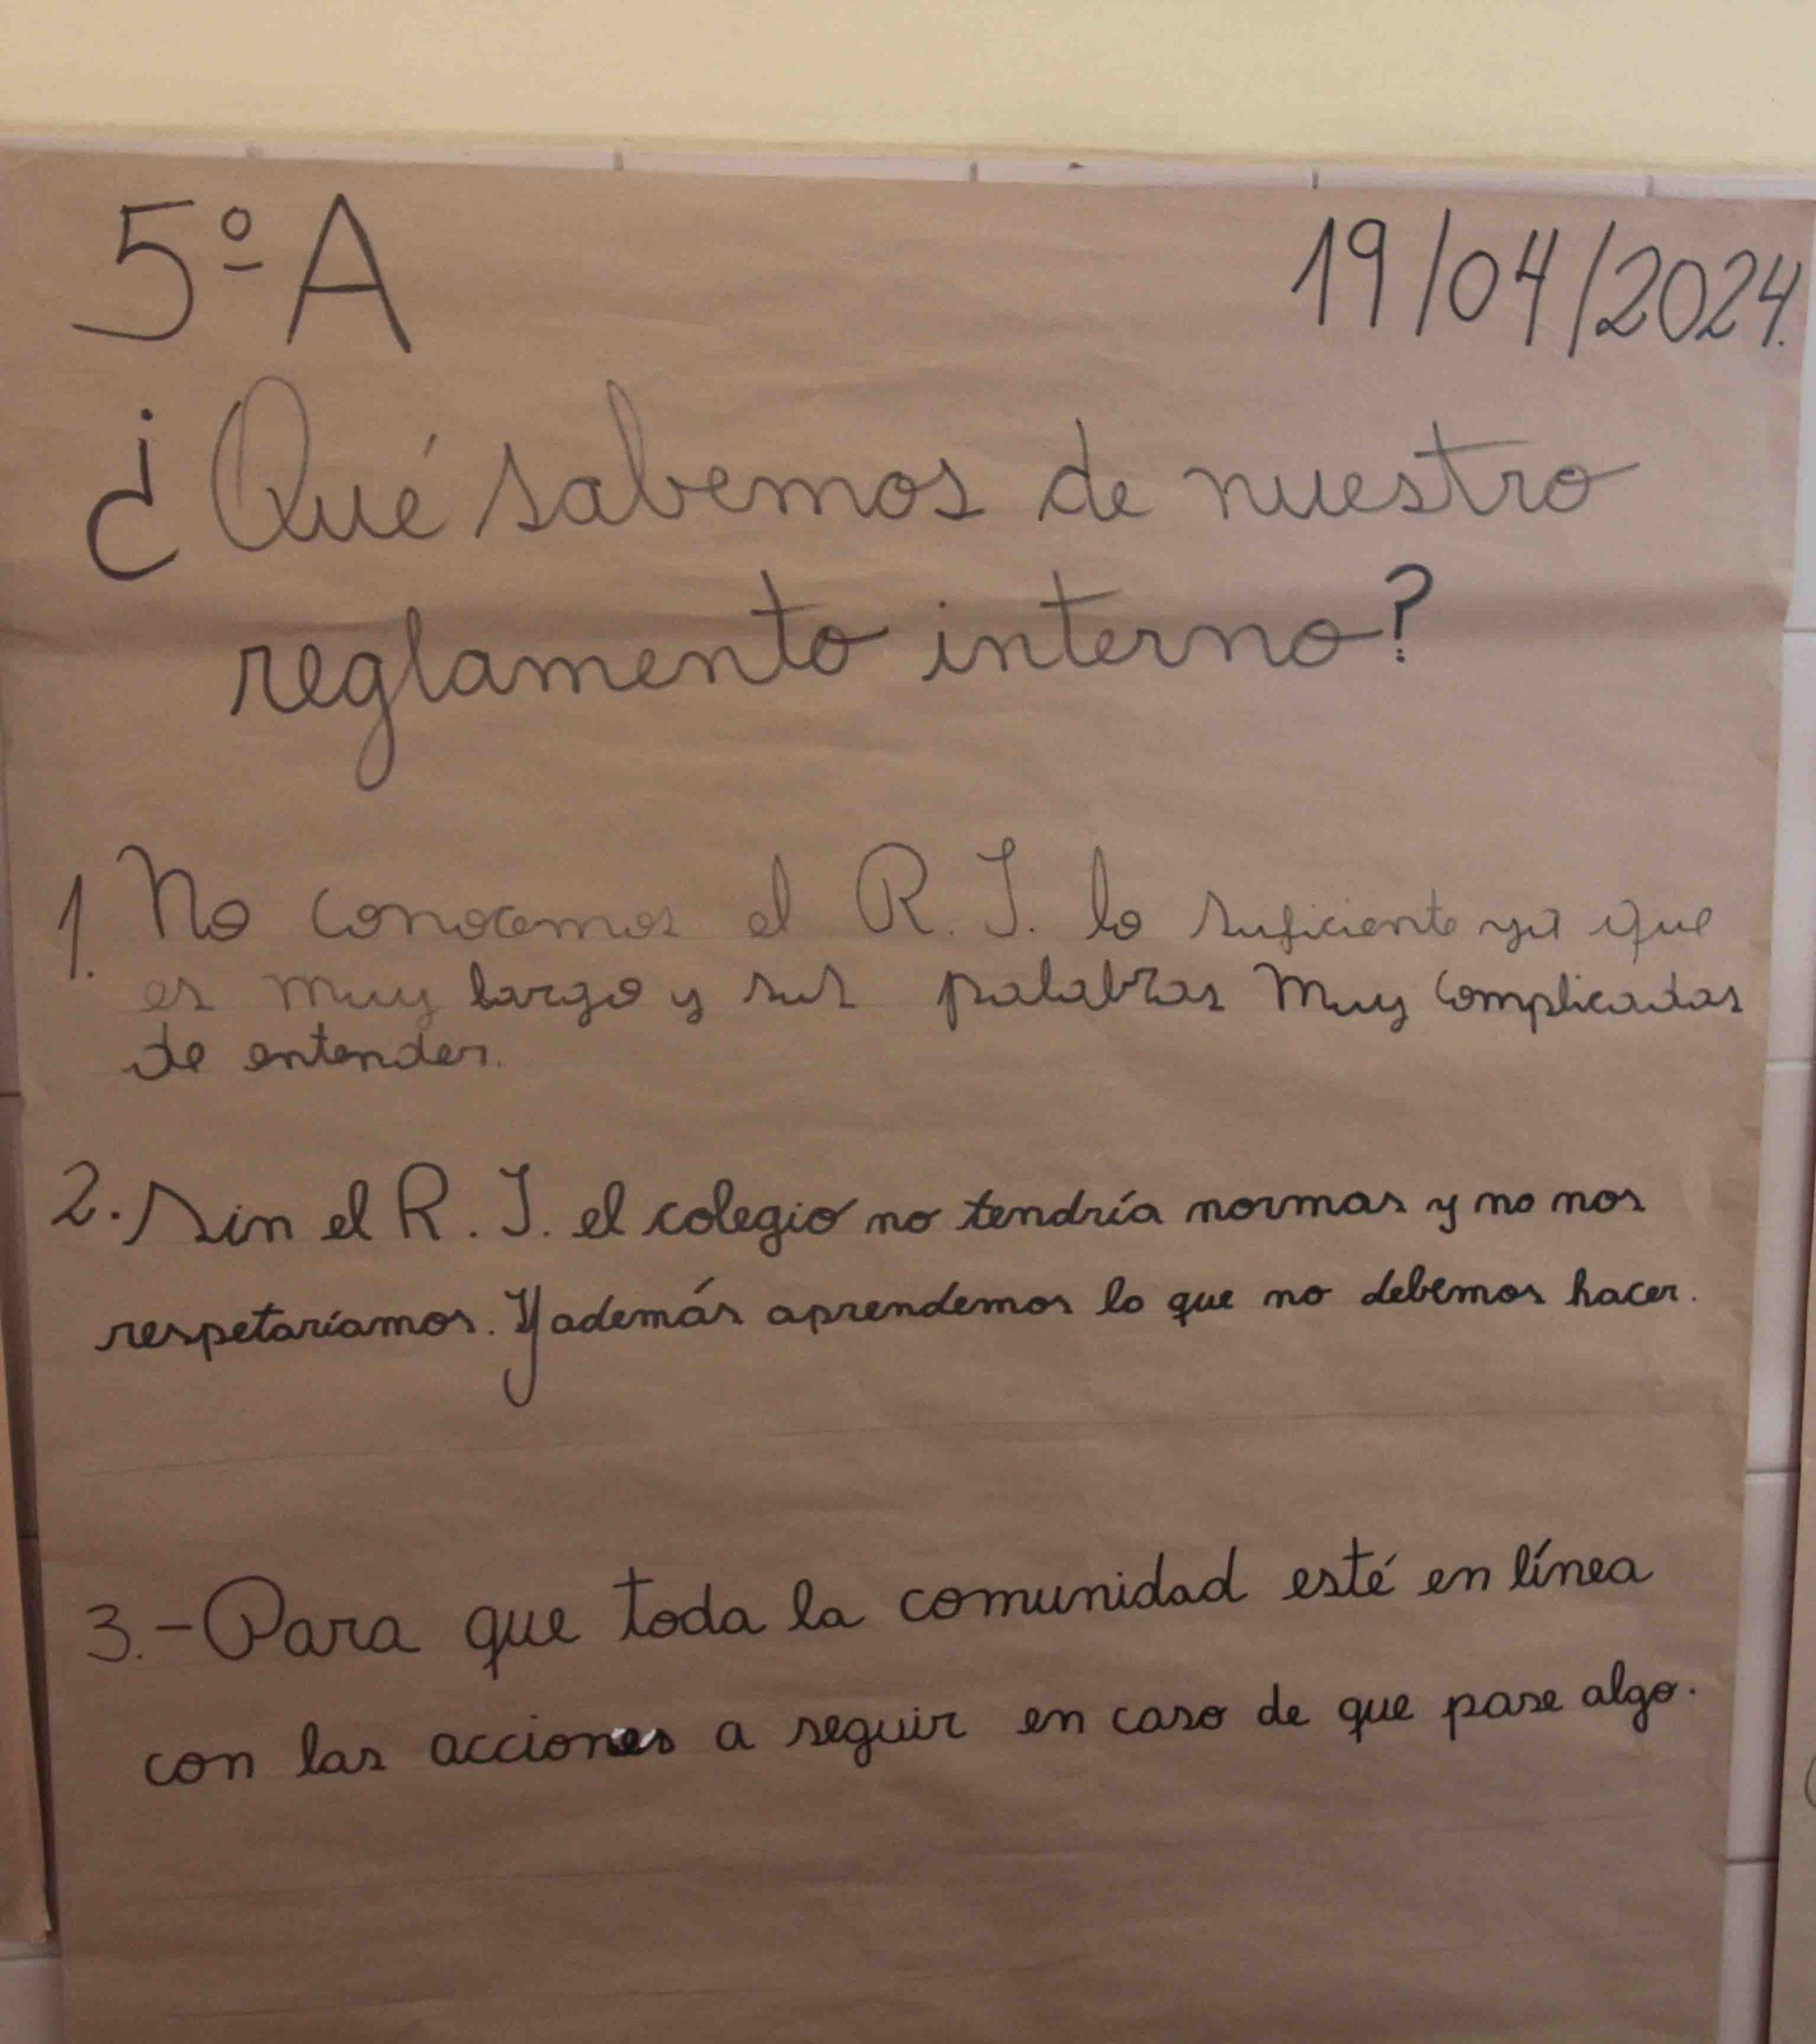 5º A 19/04/2024.
¿Qué sabemos de nuestro
reglamento interno?
1. No conocemos el R. I. lo suficiente ya que
es muy largo y sus palabras muy complicadas
de entender.
2. Sin el R. I. el colegio no tendría normas y no nos
respetaríamos. Y además aprendemos lo que no debemos hacer.
3.- Para que toda la comunidad esté en línea
con las acciones a seguir en caso de que pase algo.